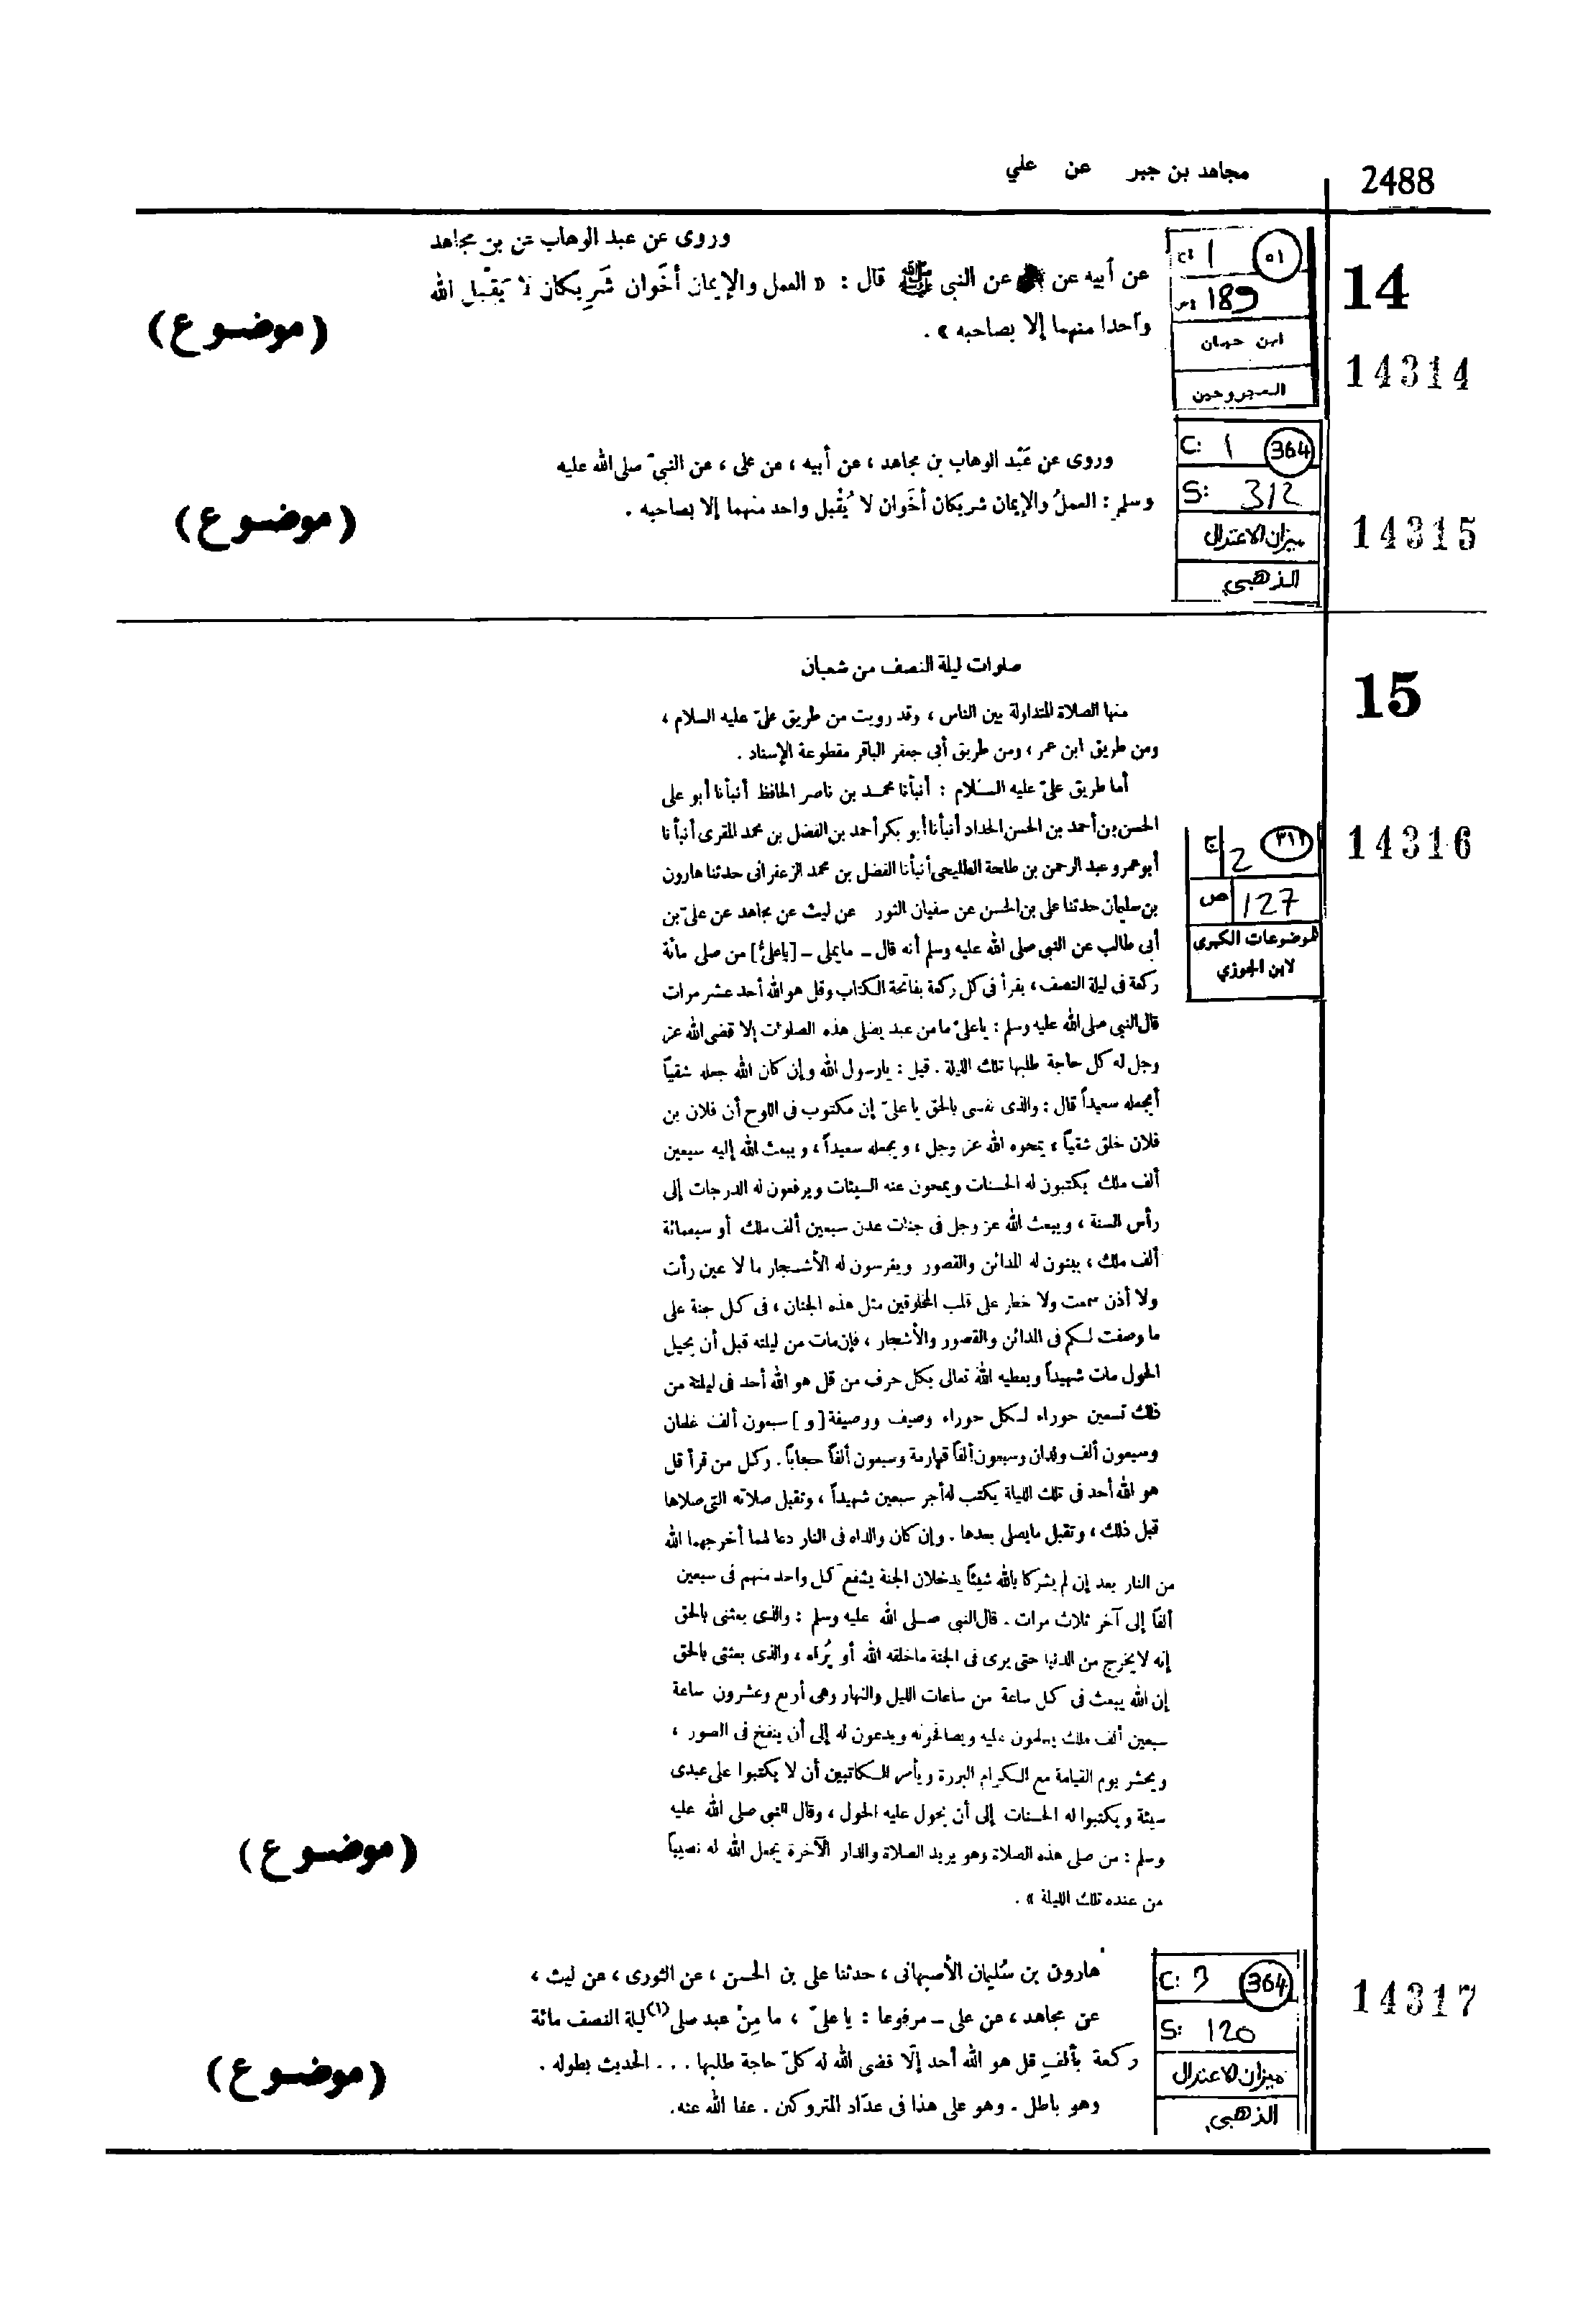 2488
مجاهد بن جبر عن علي
14
14314
ج: 1
٥١
ص: 189
ابن حبان
المجروحين
وروى عن عبد الوهاب عن بن مجاهد
عن أبيه عن عن النبى ﷺ قال : « العمل والإيمان أخَوان شَرِيكان لا يَقْبل الله
واحدا منهما إلا بصاحبه » .
(موضوع)
14315
C: 1
364
S: 312
ميزان الاعتدال
الذهبي
وروى عن عَبْد الوهاب بن مجاهد ، عن أبيه ، عن على ، عن النبيّ صلى الله عليه
وسلم : العملُ والإيمان شريكان أخَوان لا يُقْبل واحد منهما إلا بصاحبه .
(موضوع)
15
صلوات ليلة النصف من شعبان
منها الصلاة المتداولة بين الناس ، وقد رويت من طريق علىّ عليه السلام ،
ومن طريق ابن عمر ، ومن طريق أبى جعفر الباقر مقطوعة الإسناد .
14316
ج 2
٣١٢
ص 127
الموضوعات الكبرى
لابن الجوزي
أما طريق علىّ عليه السلام : أنبأنا محمد بن ناصر الحافظ أنبأنا أبو على
الحسن بن أحمد بن الحسن الحداد أنبأنا أبو بكر أحمد بن الفضل بن محمد المقرى أنبأنا
أبو عمرو عبد الرحمن بن طلحة الطليحى أنبأنا الفضل بن محمد الزعفرانى حدثنا هارون
بن سليمان حدثنا على بن الحسن عن سفيان الثور عن ليث عن مجاهد عن علىّ بن
أبى طالب عن النبى صلى الله عليه وسلم أنه قال ـ مايملى ـ [ياعلىُّ] من صلى مائة
ركعة فى ليلة النصف ، يقرأ فى كل ركعة بفاتحة الكتاب وقل هو الله أحد عشر مرات
قال النبى صلى الله عليه وسلم : ياعلىّ ما من عبد يصلى هذه الصلوات إلا قضى الله عز
وجل له كل حاجة طلبها تلك الليلة . قيل : يارسول الله وإن كان الله جعله شقياً
أيجعله سعيداً قال : والذى نفسى بالحق يا علىّ إن مكتوب فى اللوح أن فلان بن
فلان خلق شقياً ، يمحوه الله عز وجل ، ويجعله سعيداً ، ويبعث الله إليه سبعين
ألف ملك يكتبون له الحسنات ويمحون عنه السيئات ويرفعون له الدرجات إلى
رأس السنة ، ويبعث الله عز وجل فى جنات عدن سبعين ألف ملك أو سبعمائة
ألف ملك ، يبنون له المدائن والقصور ويغرسون له الأشجار ما لا عين رأت
ولا أذن سمعت ولا خطر على قلب المخلوقين مثل هذه الجنان ، فى كل جنة على
ما وصفت لكم فى المدائن والقصور والأشجار ، فإن مات من ليلته قبل أن يحيل
الحول مات شهيداً ويعطيه الله تعالى بكل حرف من قل هو الله أحد فى ليلته من
ذلك تسعين حوراء لكل حوراء وصيف ووصيفة [و] سبعون ألف غلمان
وسبعون ألف ولدان وسبعون ألفاً قهارمة وسبعون ألفاً حجاباً . وكل من قرأ قل
هو الله أحد فى تلك الليلة يكتب له أجر سبعين شهيداً ، وتقبل صلاته التى صلاها
قبل ذلك ، وتقبل مايصلى بعدها . وإن كان والداه فى النار دعا لهما أخرجهما الله
من النار بعد إن لم يشركا بالله شيئاً يدخلان الجنة يشفع كل واحد منهم فى سبعين
ألفاً إلى آخر ثلاث مرات . قال النبى صلى الله عليه وسلم : والذى بعثنى بالحق
إنه لايخرج من الدنيا حتى يرى فى الجنة ماخلقه الله أو يُراه ، والذى بعثنى بالحق
إن الله يبعث فى كل ساعة من ساعات الليل والنهار وهى أربع وعشرون ساعة
سبعين ألف ملك يسلمون عليه ويصافحونه ويدعون له إلى أن ينفخ فى الصور ،
ويحشر يوم القيامة مع الكرام البررة ويأمر الكاتبين أن لا يكتبوا على عبدى
سيئة ويكتبوا له الحسنات إلى أن يحول عليه الحول ، وقال النبى صلى الله عليه
وسلم : من صلى هذه الصلاة وهو يريد الصلاة والدار الآخرة يجعل الله له نصيباً
من عنده تلك الليلة » .
(موضوع)
14317
C: 3
364
S: 120
ميزان الاعتدال
الذهبي
هارون بن سُليمان الأصبهانى ، حدثنا على بن الحسن ، عن الثورى ، عن ليث ،
عن مجاهد ، عن على ـ مرفوعا : يا علىّ ، ما مِنْ عبد صلى (١) ليلة النصف مائة
ركعة بألفِ قل هو الله أحد إلّا قضى الله له كلّ حاجة طلبها ... الحديث بطوله .
وهو باطل . وهو على هذا فى عداد المتروكين . عفا الله عنه.
(موضوع)